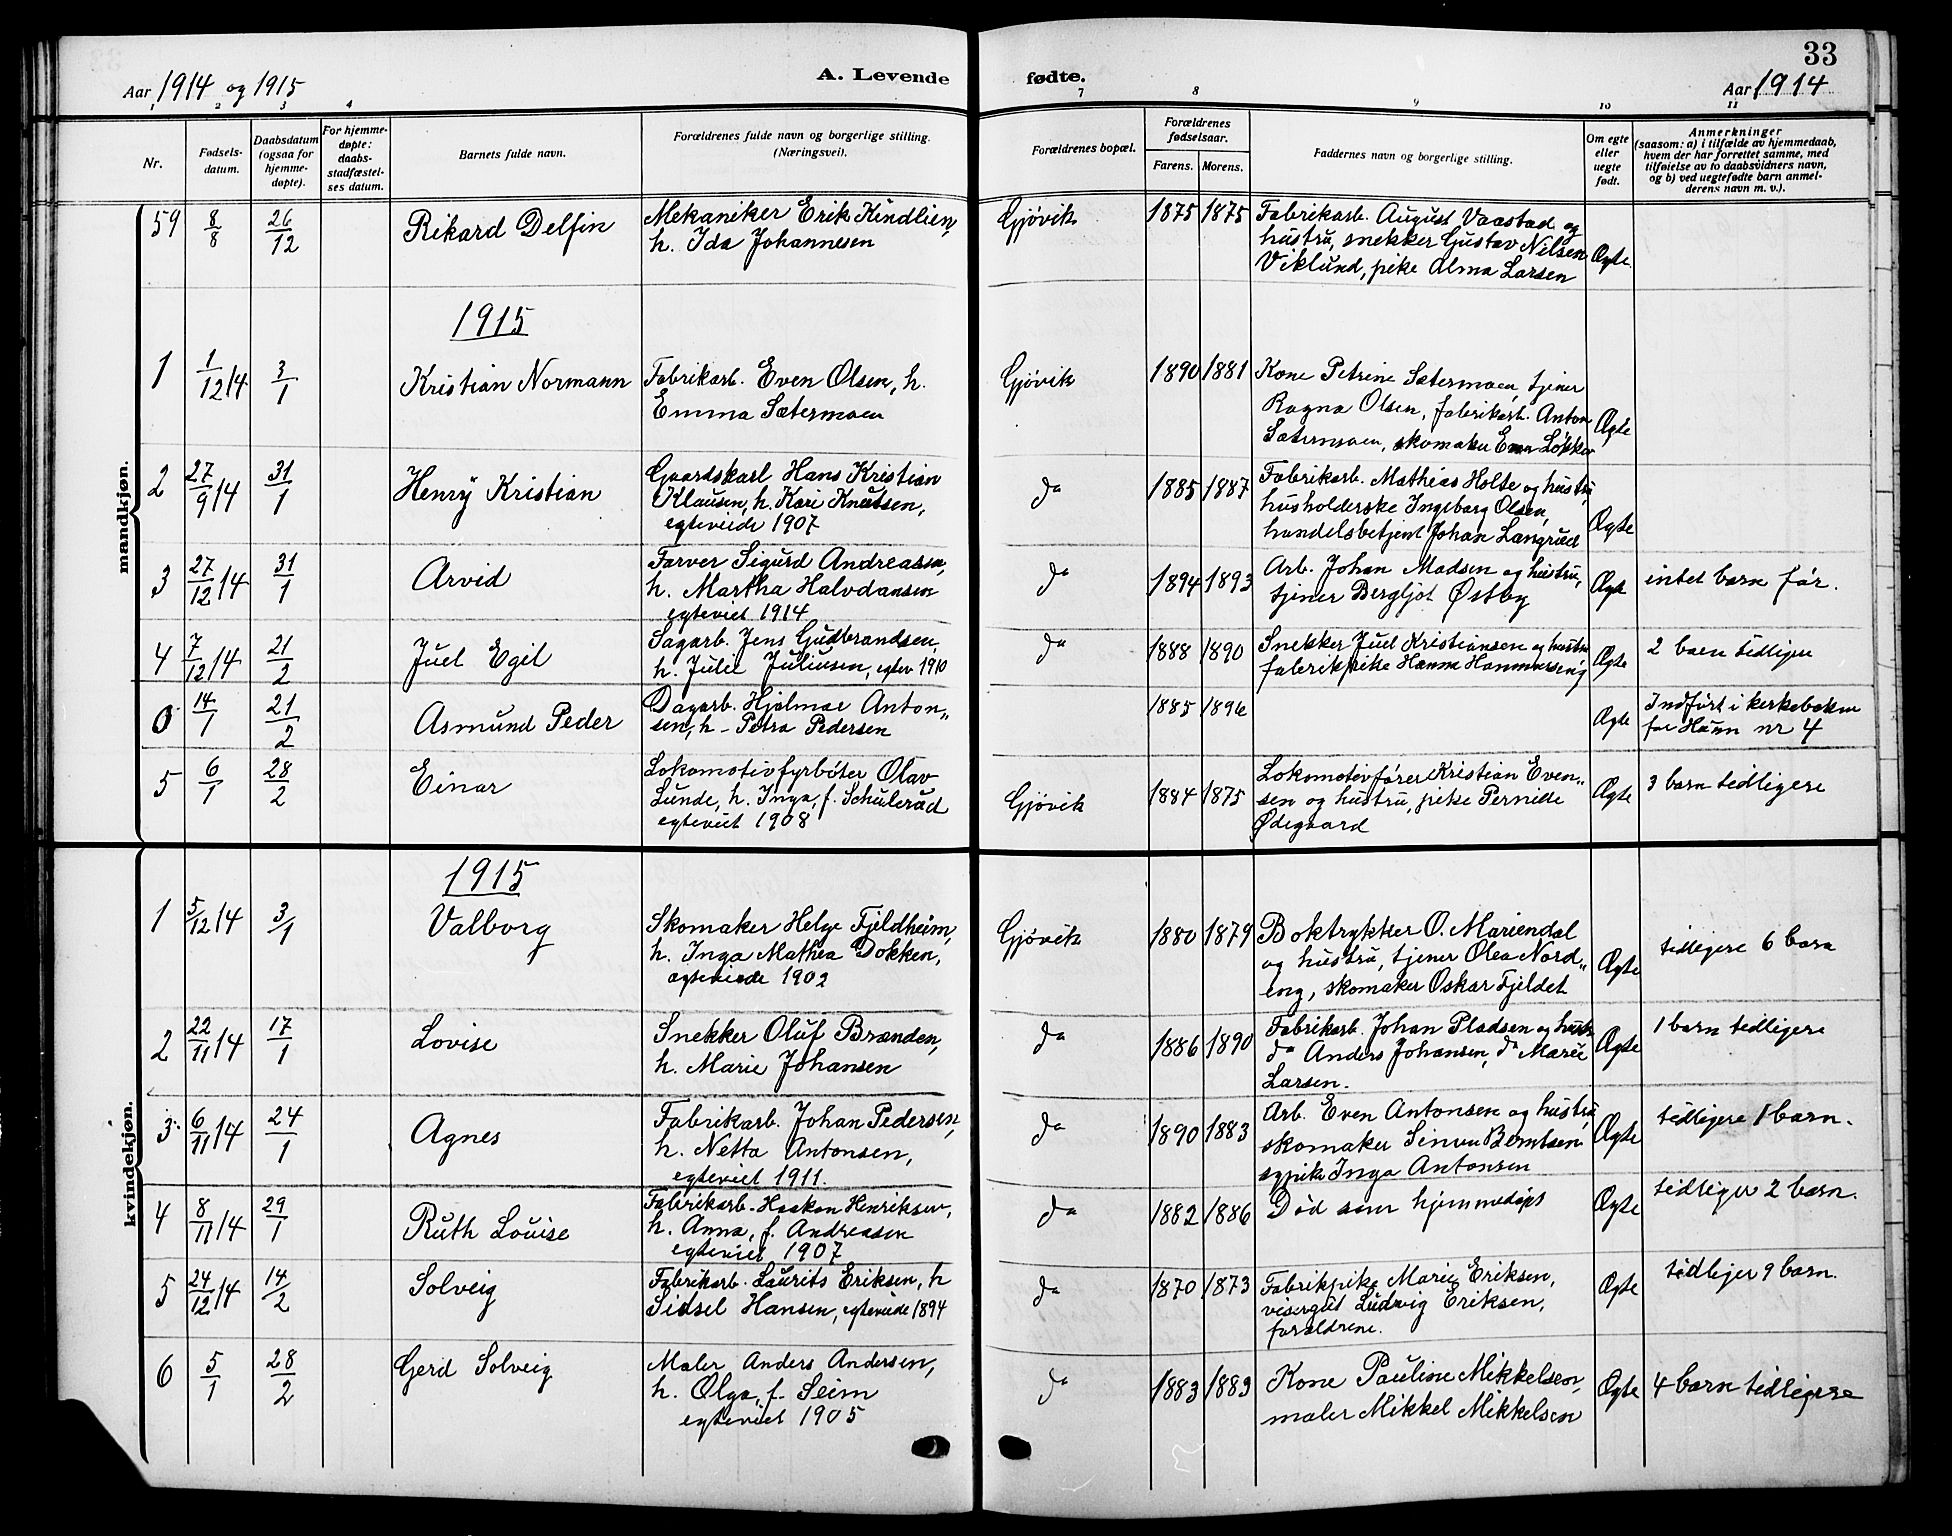 33
Aar 1914 og 1915
A. Levende fødte.
Aar 1914
1 2 3 4 7 8 9 10 11
Nr.
Fødsels-
datum.
Daabsdatum
(ogsaa for
hjemme-
døpte).
For hjemme-
døpte:
daabs-
stadfæstel-
ses datum.
Barnets fulde navn.
Forældrenes fulde navn og borgerlige stilling.
(Næringsvei).
Forældrenes bopæl.
Forældrenes
fødselsaar.
Farens. Morens.
Faddernes navn og borgerlige stilling.
Om egte
eller
uegte
født.
Anmerkninger
(saasom: a) i tilfælde av hjemmedaab,
hvem der har forrettet samme, med
tilføielse av to daabsvidners navn,
og b) ved uegtefødte barn anmel-
derens navn m. v.).
mandkjøn.
59 8/8 26/12 Rikard Delfin
Mekaniker Erik Kindlien,
h. Ida Johannesen
Gjøvik 1875 1875
Fabrikarb. August Vaastad og
hustru, snekker Gustav Nilsen
Viklund, pike Alma Larsen
Ægte.
1915
1 1/12 14 3/1 Kristian Normann
Fabrikarb. Even Olsen, h.
Emma Sætermoen
Gjøvik 1890 1881
Kone Petrine Sætermoen, tjener
Ragna Olsen, fabrikarb. Anton
Sætermoen, skomaker Løkker
Ægte
2 27/9 14 31/1 Henry Kristian
Gaardskarl Hans Kristian
Klausen, h. Kari Knutsen,
egteviede 1907
da 1885 1887
Fabrikarb. Mathias Holte og hustru,
husholderske Ingeborg Olsen,
handelsbetjent Johan Langrud
Ægte
3 27/12 14 31/1 Arvid
Farver Sigurd Andreassen,
h. Martha Halvdansen
egteviet 1914
da 1894 1893
Arb. Johan Madsen og hustru,
tjener Bergljot Østby
Ægte
intet barn før.
4 7/12 14 21/2 Juel Egil
Sagarb. Jens Gudbrandsen,
h. Julie Juliusen, egtev 1910
da 1888 1890
Snekker Juel Kristiansen og hustru
fabrikpike Hanna
Ægte
2 barn tidligere
0 14/1 21/2 Asmund Peder
Dagarb. Hjalmar Anton-
sen, h - Petra Pedersen
1885 1896
Ægte
Indført i kerkeboken
for Hunn nr 4
5 6/1 28/2 Einar
Lokomotivfyrbøter Olav
Lunde, h. Inga, f. Schulerud
egteviet 1908
Gjøvik 1884 1875
Lokomotivfører Kristian Even-
sen og hustru, pike Pernille
Ødegaard
Ægte
3 barn tidligere
kvindekjøn.
1915
1 5/12 14 3/1 Valborg
Skomaker Helge Fjeldheim,
h. Inga Mathea Dokken,
egteviede 1902
Gjøvik 1880 1879
Boktrykker O. Mariendal
og hustru, tjener Olea Nord-
eng, skomaker Oskar Fjeldet
Ægte
tidligere 6 barn
2 22/11 14 17/1 Lovise
Snekker Oluf Brænden,
h. Marie Johansen
da 1886 1890
Fabrikarb. Johan Pladsen og hustru
da Anders Johansen, da Marie
Larsen.
Ægte
1 barn tidligere
3. 6/11 14 24/1 Agnes
Fabrikarb. Johan Pedersen,
h. Netta Antonsen,
egteviet 1911.
da 1890 1883
Arb. Even Antonsen og hustru,
skomaker Simen Berntsen
sypike Inga Antonsen
Ægte
tidligere 1 barn.
4 8/11 14 29/1 Ruth Louise
Fabrikarb. Haakon Henriksen,
h. Anna, f. Andreasen
egteviet 1907
da 1882 1886
Død som hjemmedøpt
Ægte
tidliger 2 barn.
5 24/12 14 14/2 Solveig
Fabrikarb. Laurits Eriksen, h
Sidsel Hansen, egteviede 1894
da 1870 1873
Fabrikpike Marie Eriksen,
visergut Ludvig Eriksen,
forældrene.
Ægte
tidliger 9 barn.
6 5/1 28/2 Gerd Solveig
Maler Anders Andersen,
h. Olga, f. Seim
egteviet 1905
da 1883 1883
Kone Pauline Mikkelsen,
maler Mikkel Mikkelsen
Ægte
4 barn tidligere